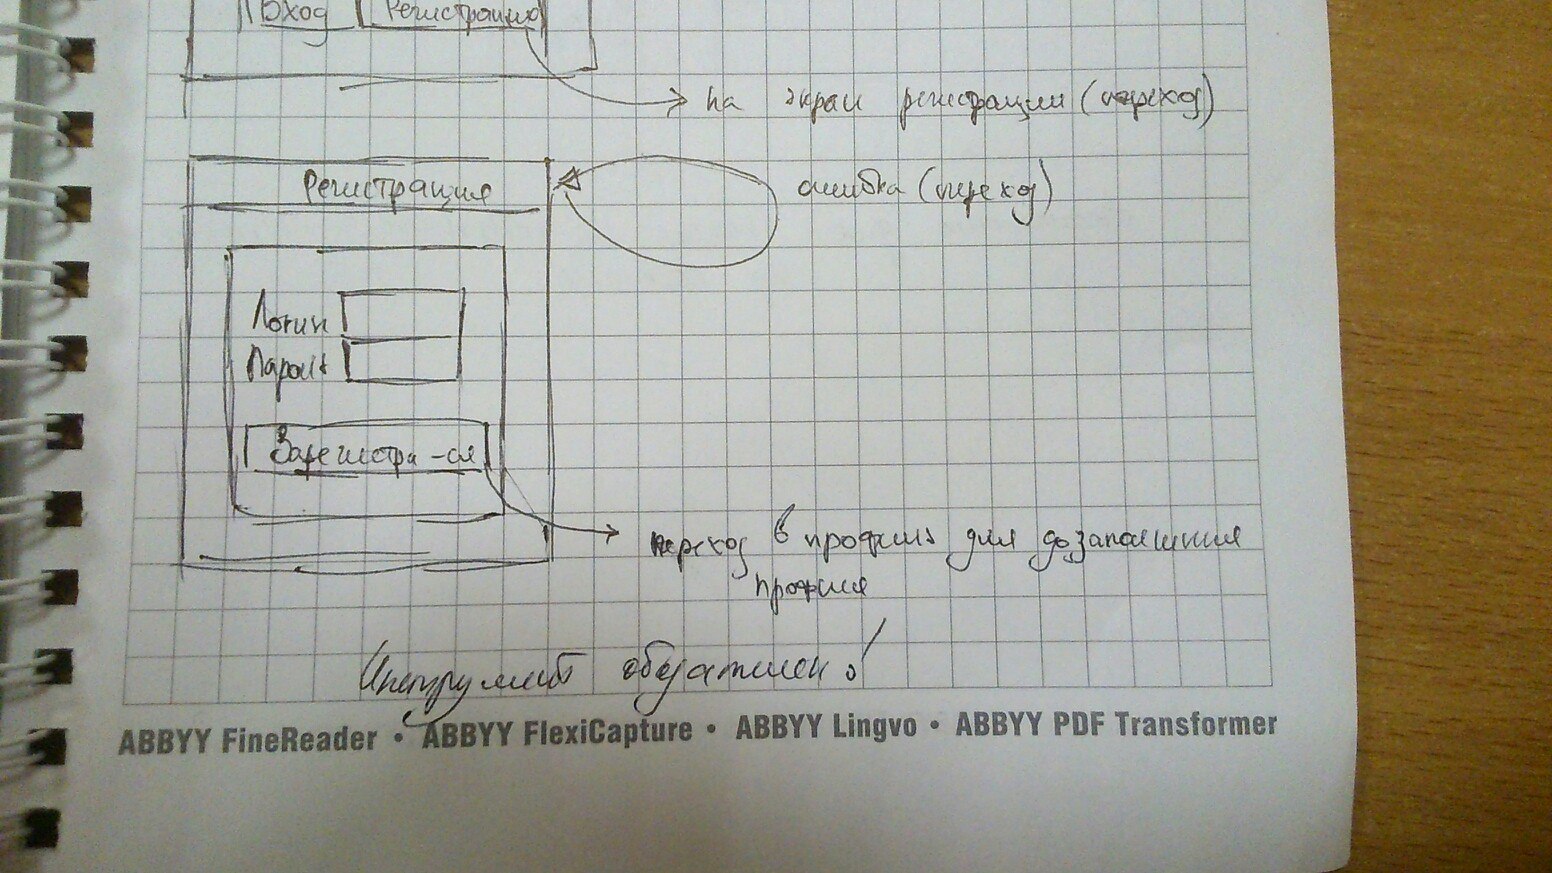 Вход Регистрация
на экран регистрации (переход)
Регистрация
ошибка (переход)
Логин
Пароль
Зарегистра-ся
переход в профиль для дозаполнения
профиля
Инструмент обязателен!
ABBYY FineReader • ABBYY FlexiCapture • ABBYY Lingvo • ABBYY PDF Transformer